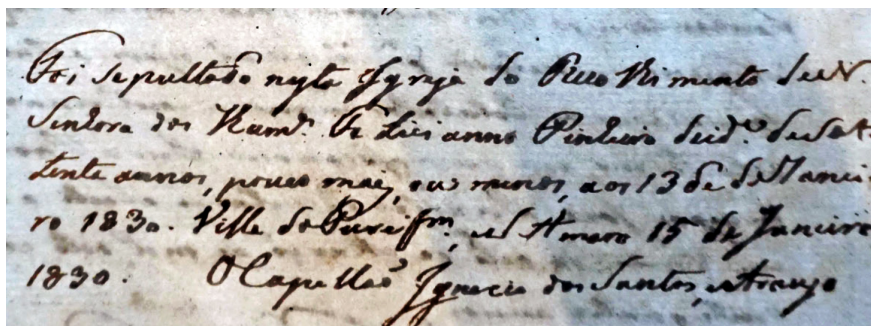 Foi sepultado nesta Igreja do Recolhimento de N.
Senhora dos Hum.es Feliciano Pinheiro de id.e de set-
tenta annos, pouco mais, ou menos, aos 13 de de Janei-
ro 1830. Villa da Purif.m, e S. Amaro 15 de Janeiro
1830. O Capellão Ignacio dos Santos, e Araujo